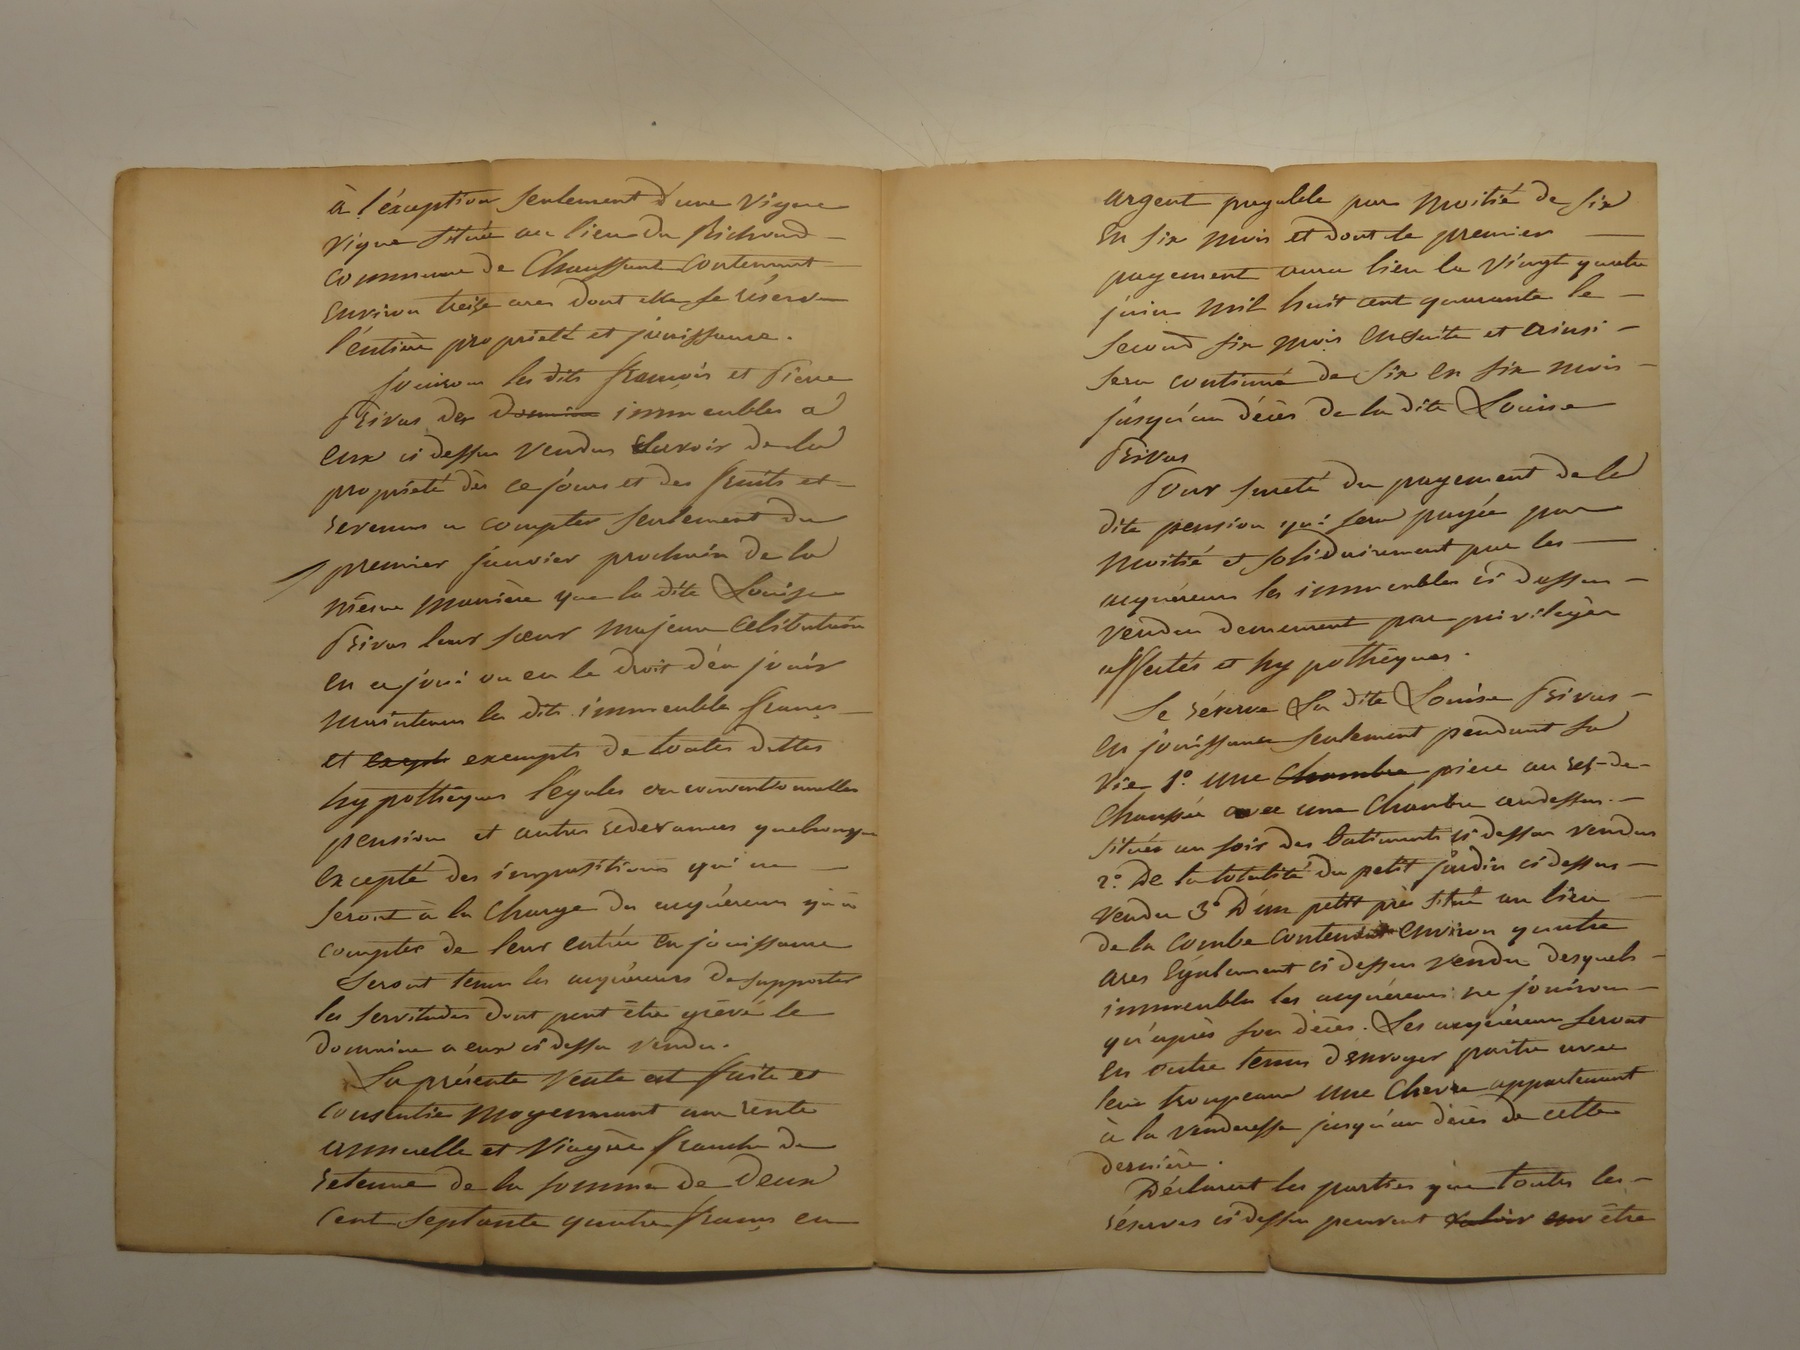 à l'éxception seulement d'une Vigne
vigne située au lieu du Richoud
commune de Chaussant contenant
environ treize ares dont elle se réserve
l'entière propriété et jouissance.
Jouiron les dits François et Pierre
Privas des domaine immeubles a
eux ci dessus vendus savoir de la
propriété dès ce jour et des fruits et
revenus a compter seulement du
premier janvier prochain de la
même manière que la dite Louise
Privas leur sœur majeure célibataire
en a joui ou eu le droit d'én jouir
maintenus les dits immeuble francs
et exept exempts de toutes dettes
hypothèques légales ou conventionnelles
pension et autres redevances quelconque
excepté des impositions qui ne
seront à la charge des acquéreurs qu'à
compter de leur entrée en jouissance
Seront tenus les acquéreurs de supporter
les servitudes dont peut être grévé le
domaine a eux ci dessu vendu.
La présente Vente est faite et
consentie moyennant une rente
annuelle et viagère franche de
retenue de la somme de deux
cent septante quatre francs en
argent payable par moitié de six
en six mois et dont le premier
payement aura lieu le vingt quatre
juin mil huit cent quarante le
second six mois ensuite et ainsi
sera continué de six en six mois
jusqu'au décès de la dite Louise
Privas
Pour sureté du payement de la
dite pension qui sera payée par
moitié et solidairement par les
acquéreurs les immeubles ci dessus
vendus demeurent par privilège
affectés et hypothèques.
Se réserve La dite Louise Privas
en jouissance seulement pendant sa
vie 1º. une chambre piece au rez-de-
chaussée avec une Chambre audessus.
située au soir des batiments ci dessus vendus
2º. De la totalité du petit jardin ci dessus
vendu 3º D'un petit prè situé au lieu
de la combe contenant environ quatre
ares également ci dessus vendu desquels
immeubles les acquéreurs ne jouiron
qu'après son décès. Les acquéreurs seront
en outre tenus d'envoyer paitre avec
leur troupeau une Chevre appartenant
à la venderesse jusqu'au décès de cette
dernière.
Déclarent les parties que toutes les
réserves ci dessu peuvent valoir être